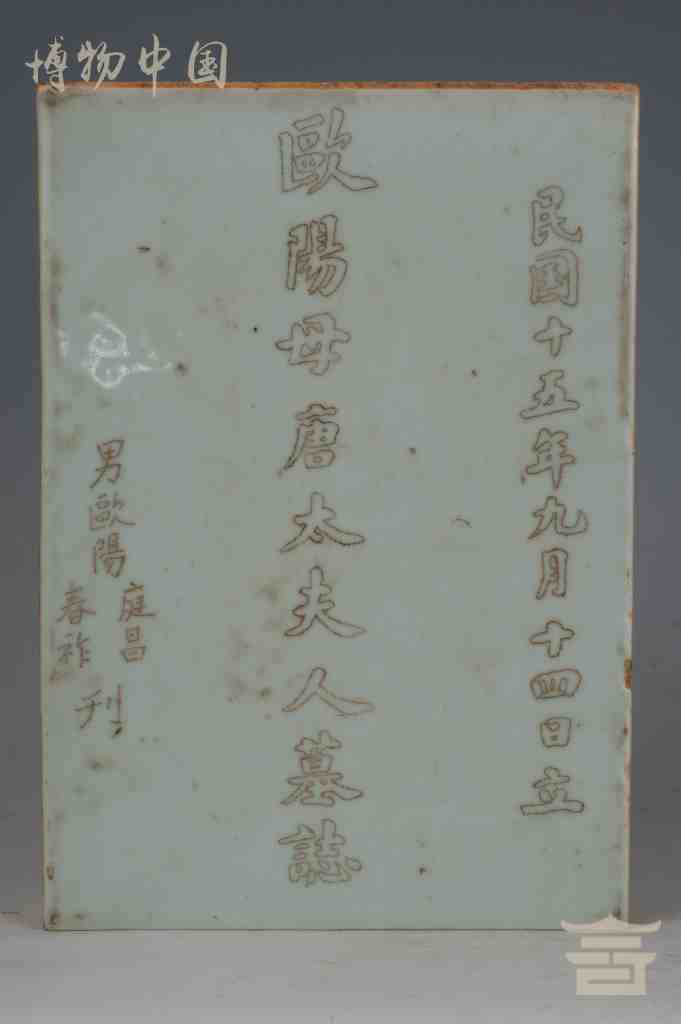 博物中国
民國十五年九月十四日立
歐陽母唐太夫人墓誌
男歐陽庭昌春祚刊